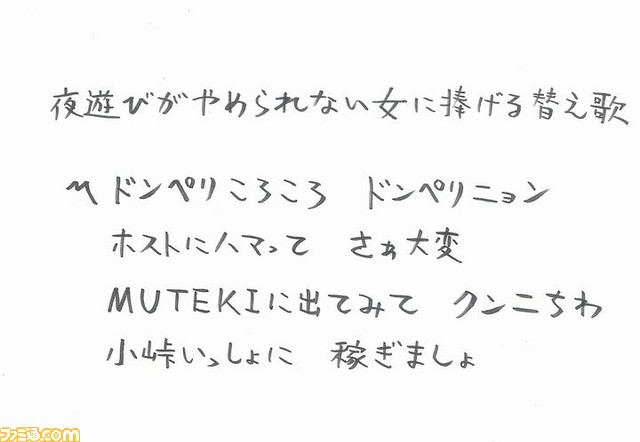 夜遊びがやめられない女に捧げる替え歌
〽ドンペリころころ ドンペリニョン
ホストにハマって さぁ大変
MUTEKIに出てみて クンニちわ
小峠いっしょに 稼ぎましょ
ファミ通.com